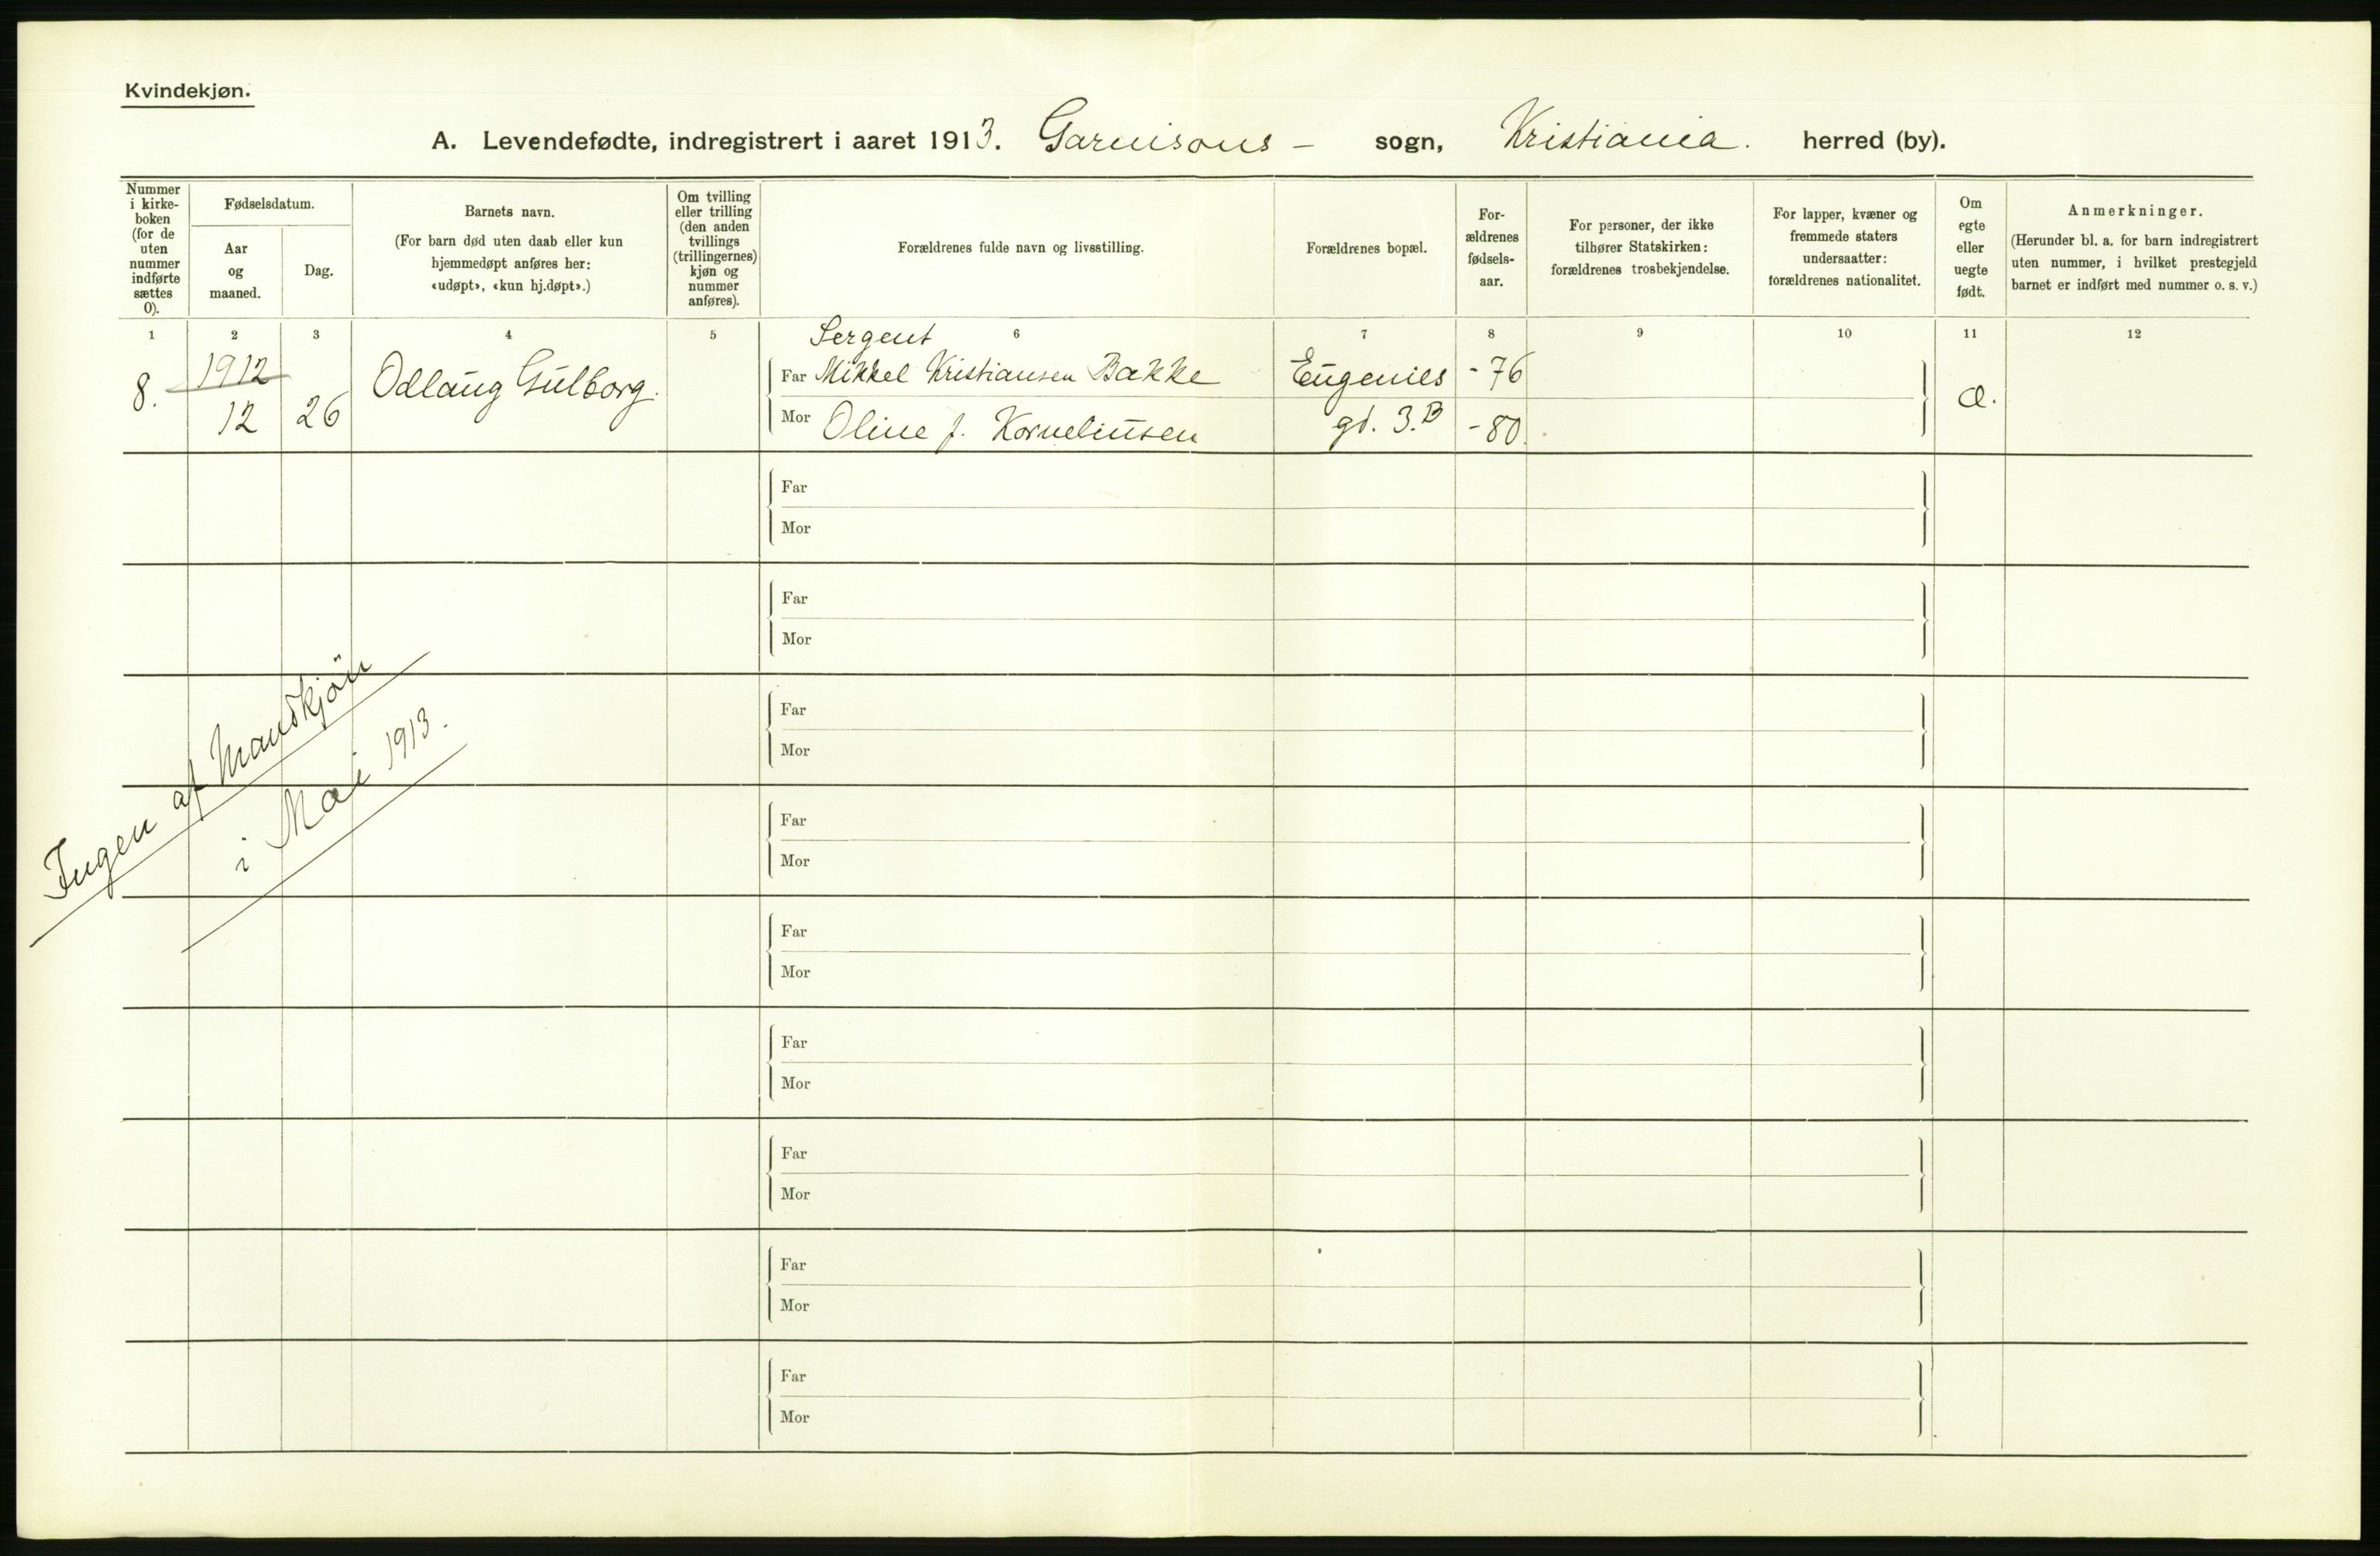 Kvindekjøn.
A. Levendefødte, indregistrert i aaret 1913. Garnisons - sogn, Kristiania. herred (by).
Nummer
i kirke-
boken
(for de
uten
nummer
indførte
sættes
0).
Fødselsdatum.
Aar
og
maaned.
Dag.
Barnets navn.
(For barn død uten daab eller kun
hjemmedøpt anføres her:
«udøpt», «kun hj.døpt».)
Om tvilling
eller trilling
(den anden
tvillings
(trillingernes)
kjøn og
nummer
anføres).
Forældrenes fulde navn og livsstilling.
Forældrenes bopæl.
For-
ældrenes
fødsels-
aar.
For personer, der ikke
tilhører Statskirken:
forældrenes trosbekjendelse.
For lapper, kvæner og
fremmede staters
undersaatter:
forældrenes nationalitet.
Om
egte
eller
uegte
født.
Anmerkninger.
(Herunder bl. a. for barn indregistrert
uten nummer, i hvilket prestegjeld
barnet er indført med nummer o. s. v.)
1 2 3 4 5 6 7 8 9 10 11 12
Sergent
8. 1912 Odlaug Gulborg. Far Mikkel Kristiansen Bakke Eugenies - 76
12 26 Mor Oline f. Korneliusen gd. 3.B - 80.
Far
Mor
Far
Mor
Ingen af Mandkjøn
i Mai 1913.
Far
Mor
Far
Mor
Far
Mor
Far
Mor
Far
Mor
Far
Mor
Far
Mor